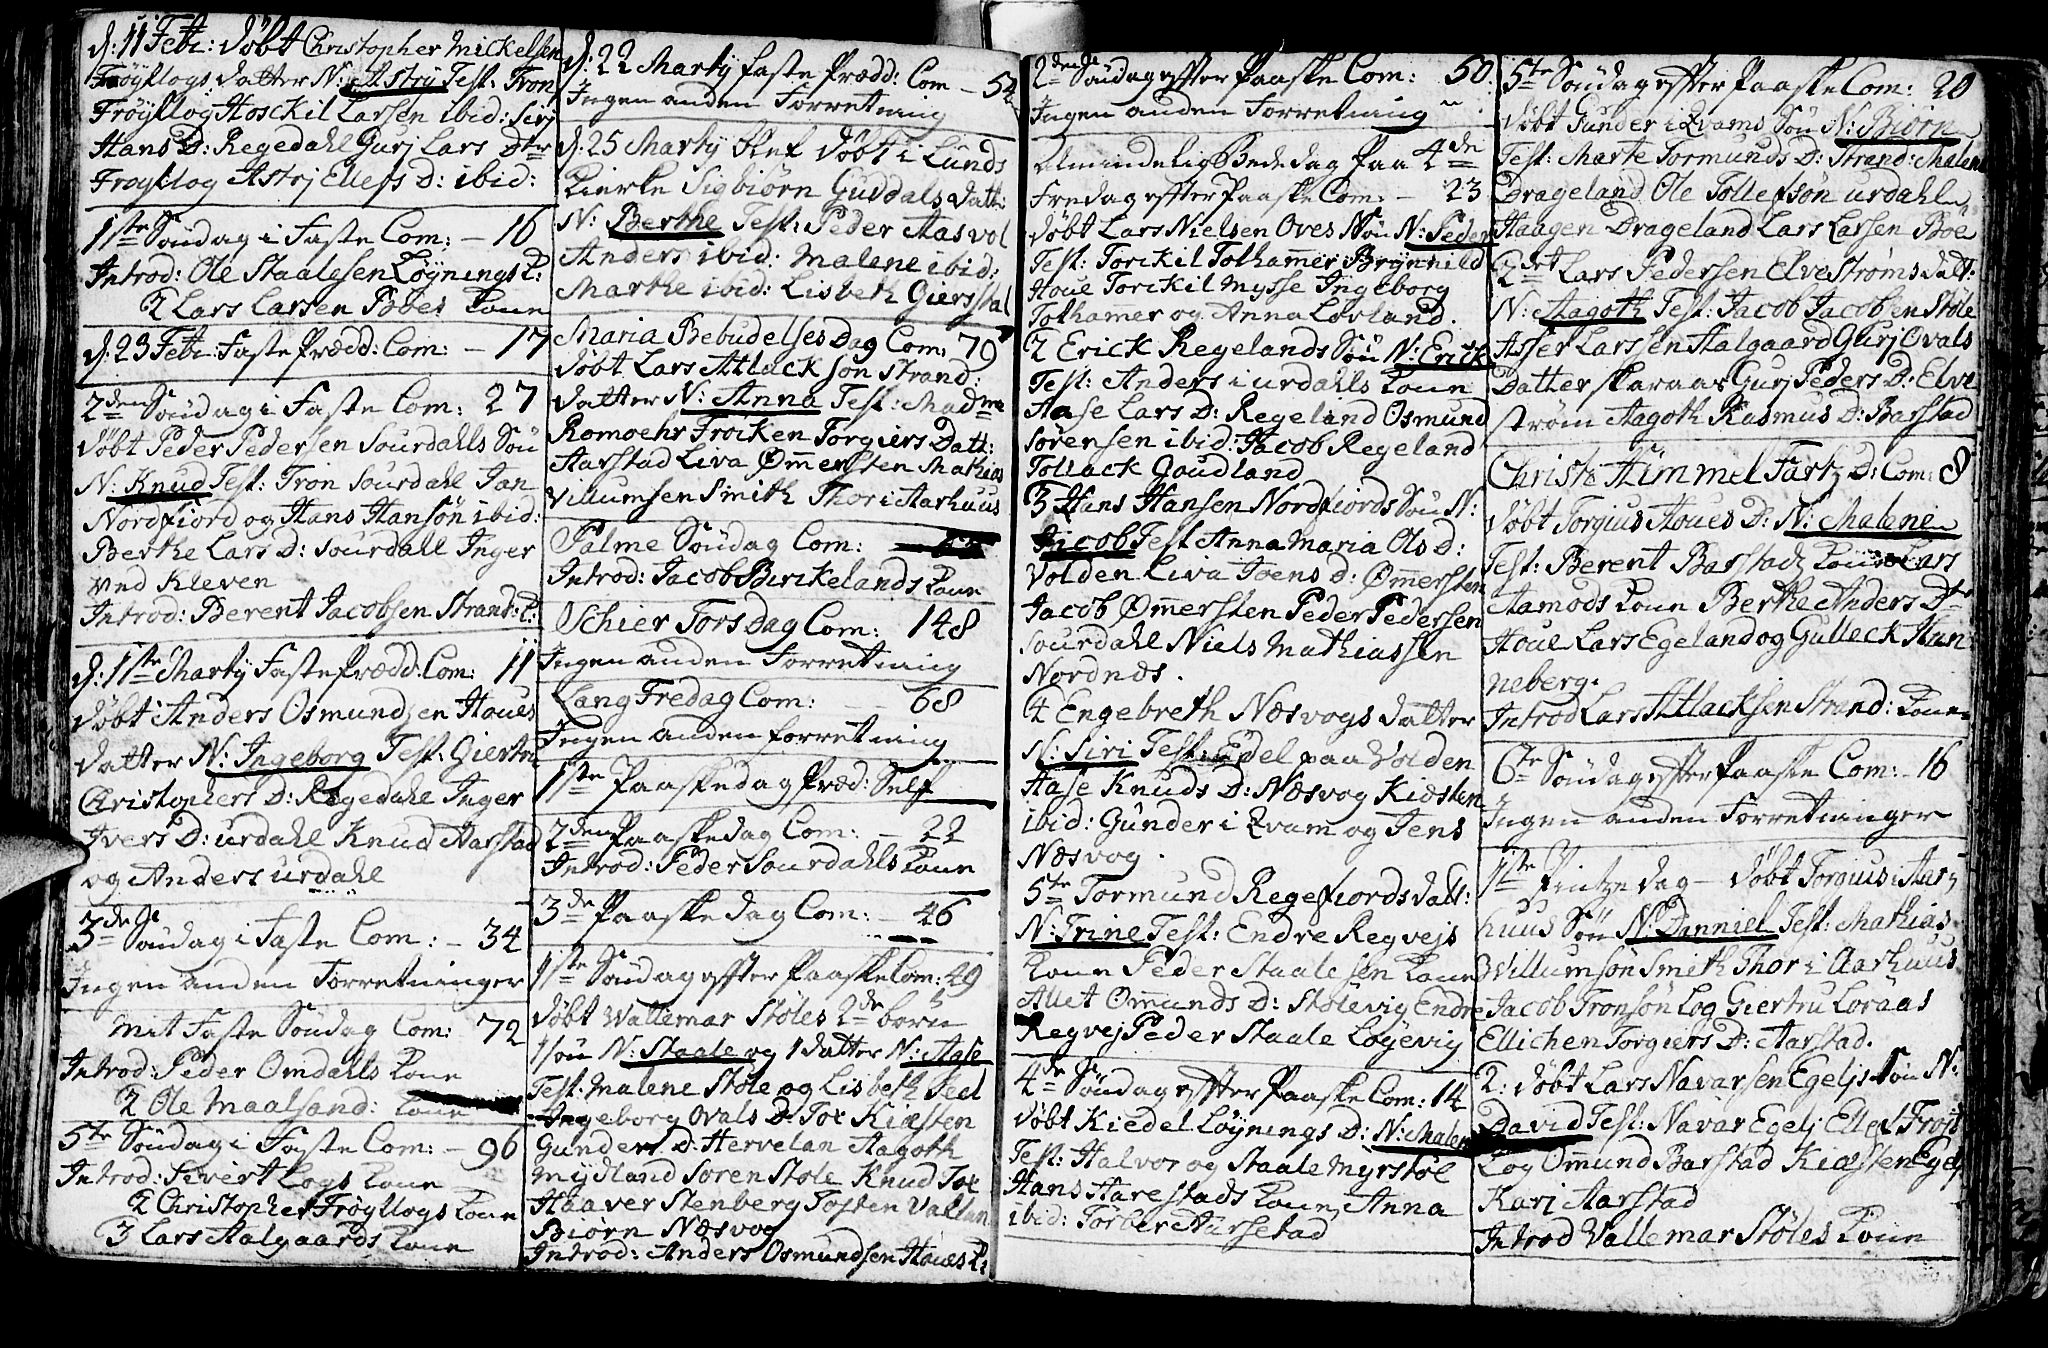 d: 11 Febr: døbt Christopher Mickelsen
Frøyllogs datter N: Astrj Test: Tron
Frøyllog Hosckil Larsen ibid: Sirj
Hans D: Regedahl Gurj Lars Dtr
Frøyllog Astrj Ellefs D: ibid:
1ste Søndag i Faste Com: - 16
Introd: Ole Staalesen Løynings K:
2 Lars Larsen Bøes Kone
d: 23 Febr: Faste Prædd: Com: - 17
2den Søndag i Faste Com: 27
døbt Peder Pedersen Sourdahls Søn
N: Knud Test: Tron Sourdahl Jan
Nordfiord og Hans Hansøn ibid:
Berthe Lars D: Sourdahl Inger
ved Kleven
Introd: Berent Jacobsen Strand: K:
d: 1ste Martij Faste Prædd: Com: 11
døbt Anders Osmundsen Houes
datter N: Ingeborg Test: Giertru
Christophers D: Regedahl Inger
Ivers D: urdahl Knud Aarstad
og Anders urdahl
3de Søndag i Faste Com: - 34
Ingen anden Forretninger
Mit Faste Søndag Com: 72
Introd: Peder Omdahls Kone
2 Ole Maalsand: Kone
5te Søndag i Faste Com: - 96
Introd: Sivert Logs Kone
2 Christopher Frøyllogs Kone
3 Lars Aalgaards Kone
d: 22 Martij faste Prædd: Com - 54
Ingen anden Forretning
d: 25 Martij blef døbt i Lunds
Kierke Sigbiørn Guddals datt:
N: Berthe Test: Peder Aasvol
Anders ibid: Malene ibid:
Marthe ibid: Lisbeth Gierstal
Maria Bebudelses Dag Com: 79
døbt Lars Atlacksøn Strand:
datter N: Anna Test: Madme
Romoehr Frøiken Torgiers Datt:
Aarstad Liva Ømersten Mathias
Villumsen Smith Thor i Aarhuus
Palme Søndag Com:
Introd: Jacob Birkelands Kone
Schier Torsdag Com: 148
Ingen anden Forretning
Lang Fredag Com: 68
Ingen anden forretning
1ste Paaskedag Præd: Self
2den Paaskedag Com: - 22
Introd: Peder Sourdahls Kone
3de Paaskedag Com: - 46
1ste Søndag effter Paaske Com: 49
døbt Wallemar Støles 2de børn
1 søn N: Staale og 1 datter N: Aase
Test: Malene Støle og Lisbeth Sed
Ingeborg Ovals D: Tox Kiæsten
Gunders D: Hervelan Aagoth
Mydland Søren Støle Knud Tox
Haaver Stenberg Tosten Vatlan
Biørn Næsvog
Introd: Anders Osmundsen Houes K:
2den Søndag effter Paaske Com: 50
Ingen anden Forretning
Almindelig Bededag paa 4de
Fredag effter Paaske Com: - 23
døbt Lars Nielsen Oves Søn N: Peder
Test: Torckil Tolhamer Brynnild
Houe Torckil Mysse Ingeborg
Tolhamer og Anna Lovland.
2 Erick Regelands Søn N: Erick
Test: Anders i urdahls Kone
Aase Lars D: Regeland Osmund
Sørensen ibid: Jacob Regeland
Tollack Gaudland
3 Hans Hansen Nordfiords Søn N:
Jacob Test Anna Maria Ols D:
Volden Liva Joens D: Ømersten
Jacob Ømersten Peder Pedersen
Sourdahl Niels Mathiassen
Nordnæs.
4 Engebreth Næsvogs datter
N: Siri Test: Edel paa Volden
Aase Knuds D: Næsvog Kiæsten
ibid: Gunder i Qvam og Jens
Næsvog.
5te Tormund Regefiords datt:
N: Trine Test: Endre Regvejs
Kone Peder Staalesen Kone
Allet Omunds D: Stølevig Endre
Regvej Peder Staale Løgevig
4de Søndag effter Paaske Com: 14
døbt Kiedel Løynings D: N: Malen
Test: Halvor og Staale Myrstøl
Hans Harestads Kone Anna
ibid: Torber Aarsetad
5te Søndag effter Paaske Com: 20
døbt Gunder i Qvams Søn N: Biørn
Test: Marte Tormunds D: Strand: Malene
Drageland Ole Tollefsøn urdahl
Haagen Drageland Lars Larsen Bøe
2det Lars Pedersen Elvestrøms datt:
N: Aagoth Test: Jacob Jacobsen Støle
Asser Larssen Aalgaard Gurj Ovals
Datter Skaraas Gurj Peders D: Elve
strøm Aagoth Rasmus D: Barstad
Christi Himmel Fartz D: Com: 8
døbt Torgius Houes D: N: Malene
Test: Berent Barstadz Kone Lars
Aamods Kone Berthe Anders Dtr
Houe Lars Egeland og Gulleck Han
neberg.
Introd Lars Atlacksen Strand: Kone
6te Søndag effter Paaske Com: - 16
Ingen anden Forretninger
1ste Pintze dag - døbt Torgius i Aar
huus Søn N: Danniel Test: Mathias
Willumsøn Smith Thor i Aarhuus
Jacob Tronsøn Log Giertru Loraas
Ellichen Torgiers D: Aarstad.
2: døbt Lars Navarsen Egeljs Søn N:
David Test: Navar Egelj Ellef Frøit
Log Omund Barstad Kiæsten Egelj
Kari Aarstad
Introd Vallemar Støles Kone